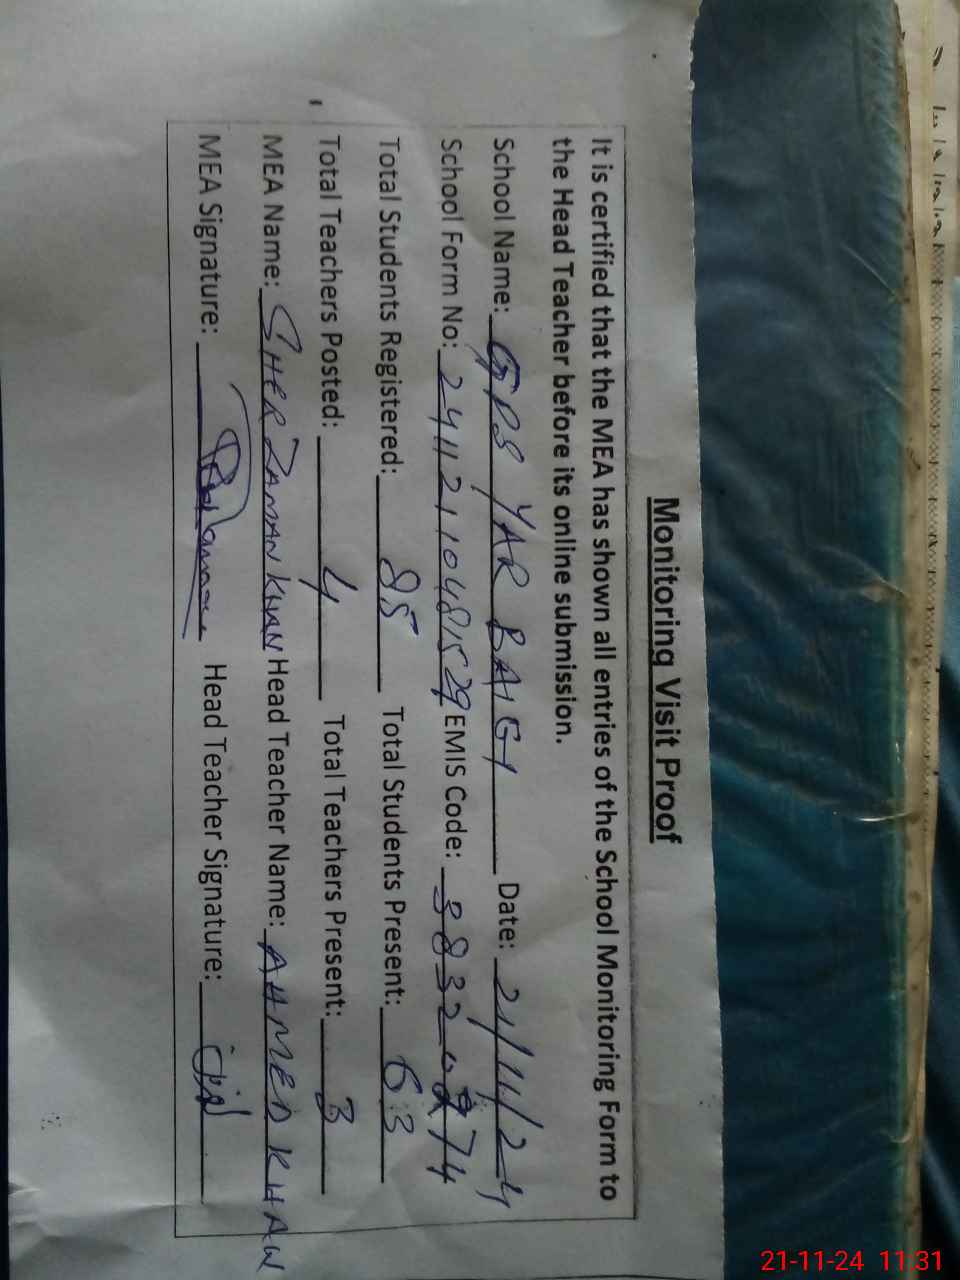 Monitoring Visit Proof
It is certified that the MEA has shown all entries of the School Monitoring Form to
the Head Teacher before its online submission.
School Name: GPS YAR BAIG Date: 21/11/24
School Form No: 24112110481529 EMIS Code: 38320
Total Students Registered: 85 Total Students Present: 63
Total Teachers Posted: 4 Total Teachers Present: 3
MEA Name: SHER ZAMAN KHAN Head Teacher Name: AHMED KHAN
MEA Signature: Head Teacher Signature:
21-11-24 11:31